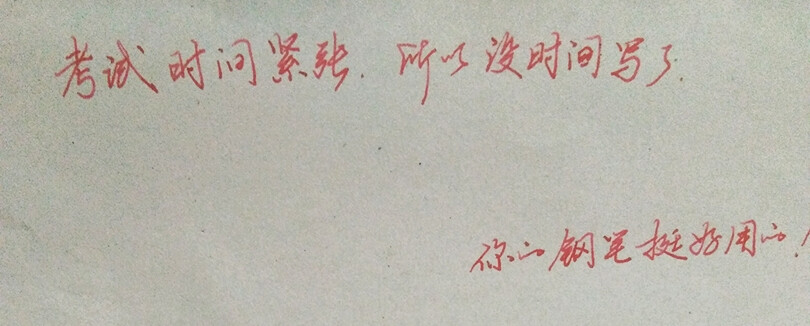 考试时间紧张.所以没时间写了.
你的钢笔挺好用的!